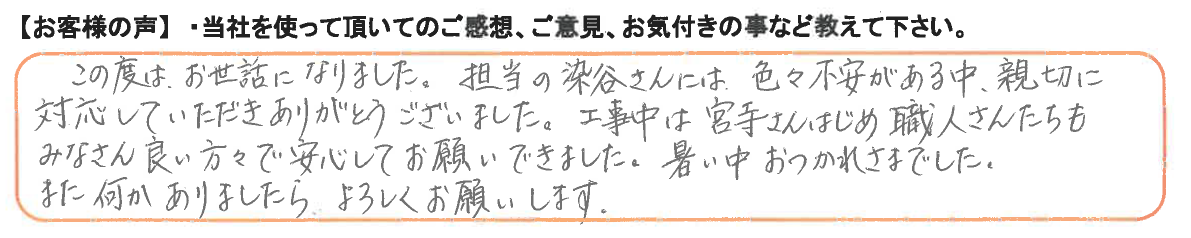 【お客様の声】・当社を使って頂いてのご感想、ご意見、お気付きの事など教えて下さい。
この度は、お世話になりました。担当の染谷さんには、色々不安がある中、親切に
対応していただきありがとうございました。工事中は宮寺さんはじめ職人さんたちも
みなさん良い方々で安心してお願いできました。暑い中おつかれさまでした。
また何かありましたら、よろしくお願いします。